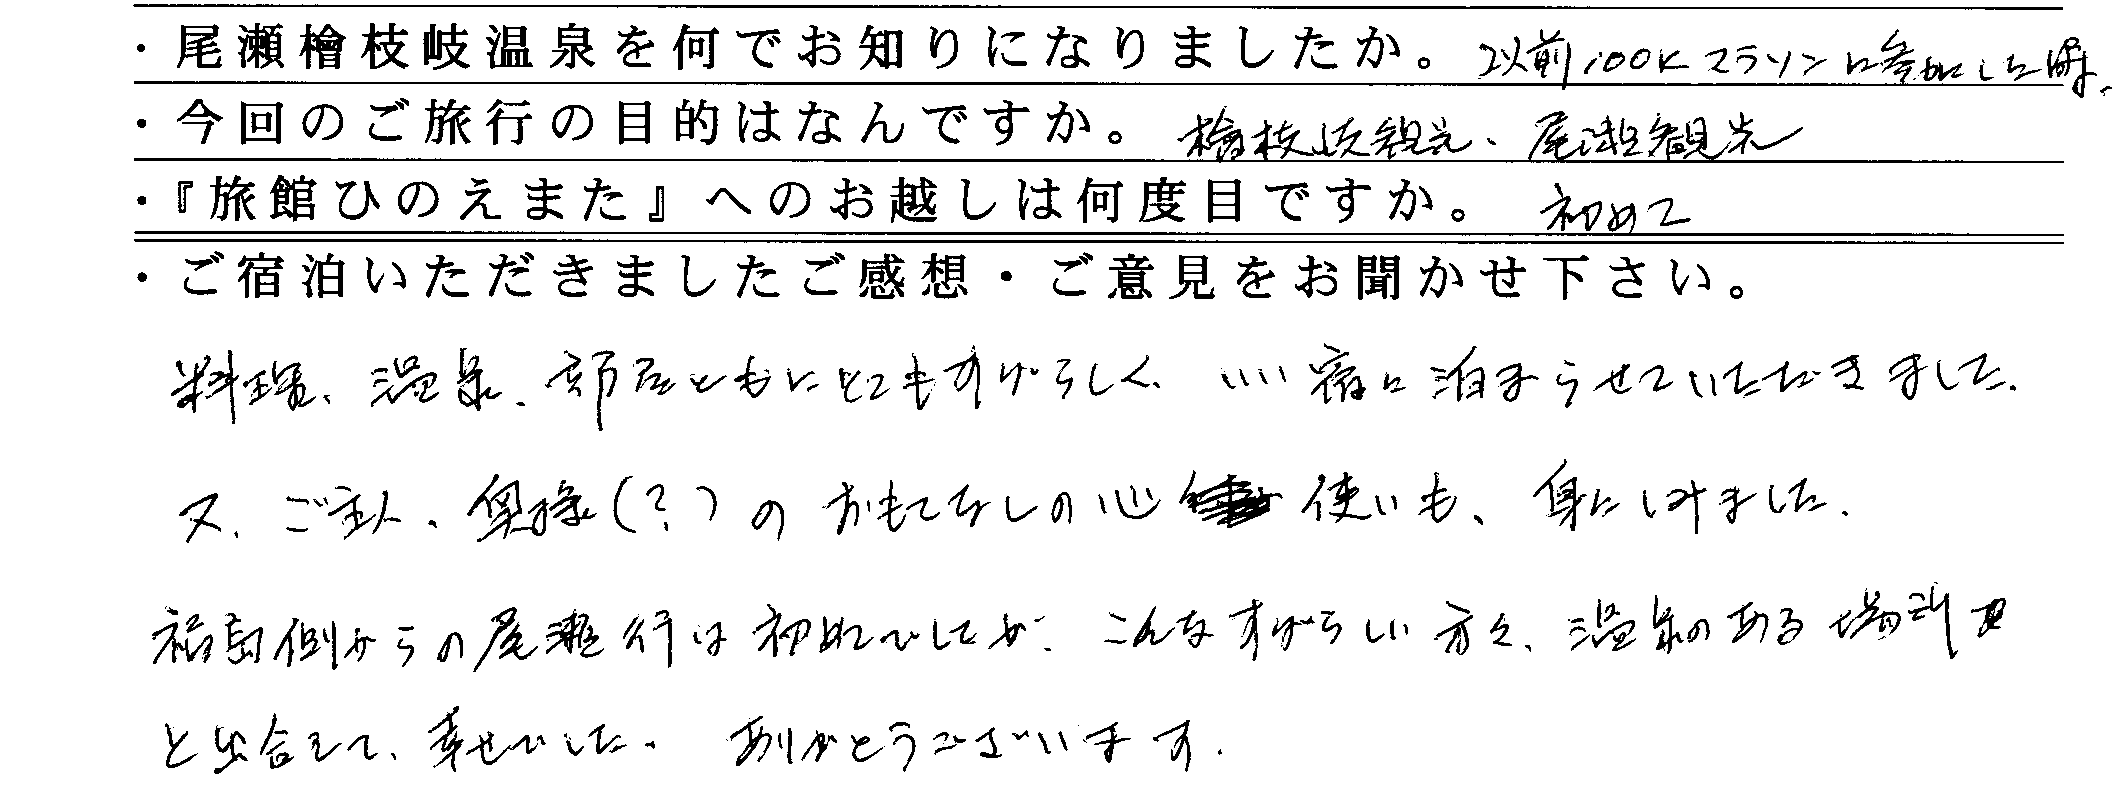 ・尾瀬檜枝岐温泉を何でお知りになりましたか。 以前100Kマラソンに参加した時、
・今回のご旅行の目的はなんですか。 檜枝岐観光、尾瀬観光
・『旅館ひのえまた』へのお越しは何度目ですか。 初めて
・ご宿泊いただきましたご感想・ご意見をお聞かせ下さい。
料理、温泉、部屋ともにとてもすばらしく、いい宿に泊まらせていただきました。
又、ご主人、奥様(?)のおもてなしの心使いも、身にしみました。
福島側からの尾瀬行は初めてでしたが、こんなすばらしい方々、温泉のある場所
と出合えて、幸せでした。ありがとうございます。